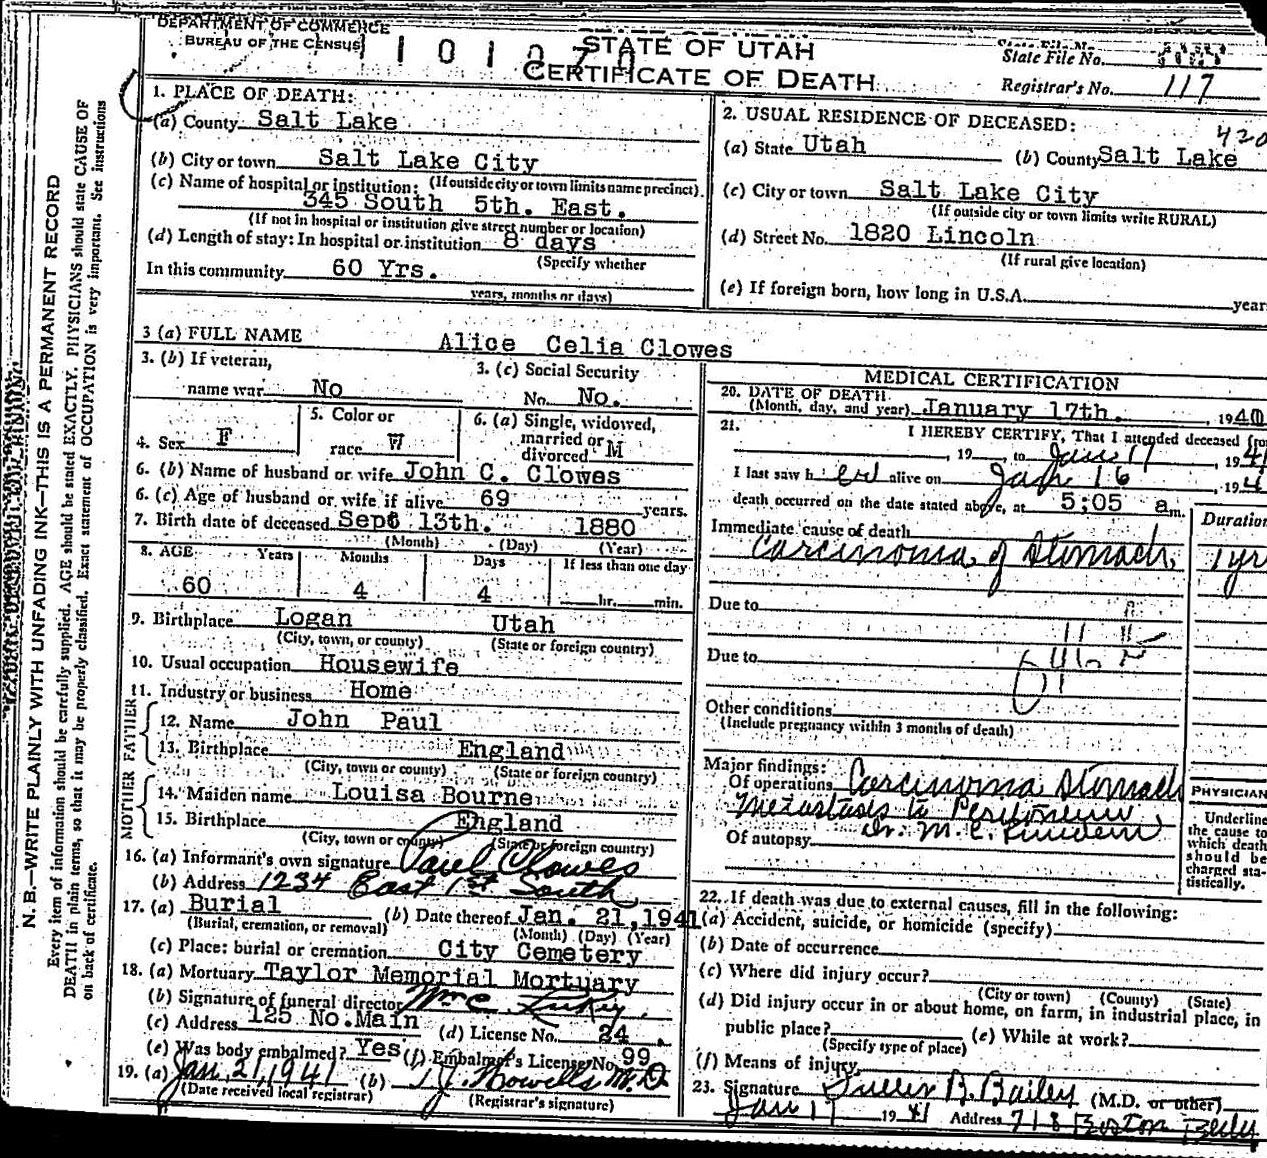 DEPARTMENT OF COMMERCE
BUREAU OF THE CENSUS
STATE OF UTAH
CERTIFICATE OF DEATH
State File No.
Registrar's No. 117
1. PLACE OF DEATH:
(a) County Salt Lake
(b) City or town Salt Lake City
(If outside city or town limits name precinct)
(c) Name of hospital or institution:
345 South 5th. East.
(If not in hospital or institution give street number or location)
(d) Length of stay: In hospital or institution 8 days
(Specify whether
In this community 60 Yrs.
years, months or days)
2. USUAL RESIDENCE OF DECEASED:
420
(a) State Utah (b) County Salt Lake
(c) City or town Salt Lake City
(If outside city or town limits write RURAL)
(d) Street No. 1820 Lincoln
(If rural give location)
(e) If foreign born, how long in U.S.A. years
3 (a) FULL NAME Alice Celia Clowes
3. (b) If veteran,
name war No
3. (c) Social Security
No. No.
4. Sex F
5. Color or
race W
6. (a) Single, widowed,
married or
divorced M
6. (b) Name of husband or wife John C. Clowes
6. (c) Age of husband or wife if alive 69 years.
7. Birth date of deceased Sept 13th. 1880
(Month) (Day) (Year)
8. AGE Years Months Days If less than one day
60 4 4 hr. min.
9. Birthplace Logan Utah
(City, town, or county) (State or foreign country)
10. Usual occupation Housewife
11. Industry or business Home
FATHER
12. Name John Paul
13. Birthplace England
(City, town or county) (State or foreign country)
MOTHER
14. Maiden name Louisa Bourne
15. Birthplace England
(City, town or county) (State or foreign country)
16. (a) Informant's own signature Paul Clowes
(b) Address 1234 East 1st South
17. (a) Burial (b) Date thereof Jan. 21, 1941
(Burial, cremation, or removal) (Month) (Day) (Year)
(c) Place: burial or cremation City Cemetery
18. (a) Mortuary Taylor Memorial Mortuary
(b) Signature of funeral director
(c) Address 125 No. Main (d) License No. 24
(e) Was body embalmed? Yes (f) Embalmer's License No. 99
19. (a) Jan. 21, 1941 (b) T J. Howells M.D.
(Date received local registrar) (Registrar's signature)
MEDICAL CERTIFICATION
20. DATE OF DEATH
(Month, day, and year) January 17th. 1940
21. I HEREBY CERTIFY, That I attended deceased from
, 19 , to Jan 17, 1941
I last saw her alive on Jan 16, 194
death occurred on the date stated above, at 5:05 a m.
Duration
Immediate cause of death
Carcinoma of Stomach 1 yr
Due to
Due to
Other conditions
(Include pregnancy within 3 months of death)
Major findings:
Of operations Carcinoma Stomach
Metastasis to Peritoneum
Dr. M. E.
Of autopsy
PHYSICIAN
Underline
the cause to
which death
should be
charged sta-
tistically.
22. If death was due to external causes, fill in the following:
(a) Accident, suicide, or homicide (specify)
(b) Date of occurrence
(c) Where did injury occur?
(City or town) (County) (State)
(d) Did injury occur in or about home, on farm, in industrial place, in
public place? (e) While at work?
(Specify type of place)
(f) Means of injury
23. Signature B. Bailey (M.D. or other)
Jan 17 1941 Address 718 Boston
N. B.—WRITE PLAINLY WITH UNFADING INK—THIS IS A PERMANENT RECORD
Every item of information should be carefully supplied. AGE should be stated EXACTLY. PHYSICIANS should state CAUSE OF
DEATH in plain terms, so that it may be properly classified. Exact statement of OCCUPATION is very important. See instructions
on back of certificate.